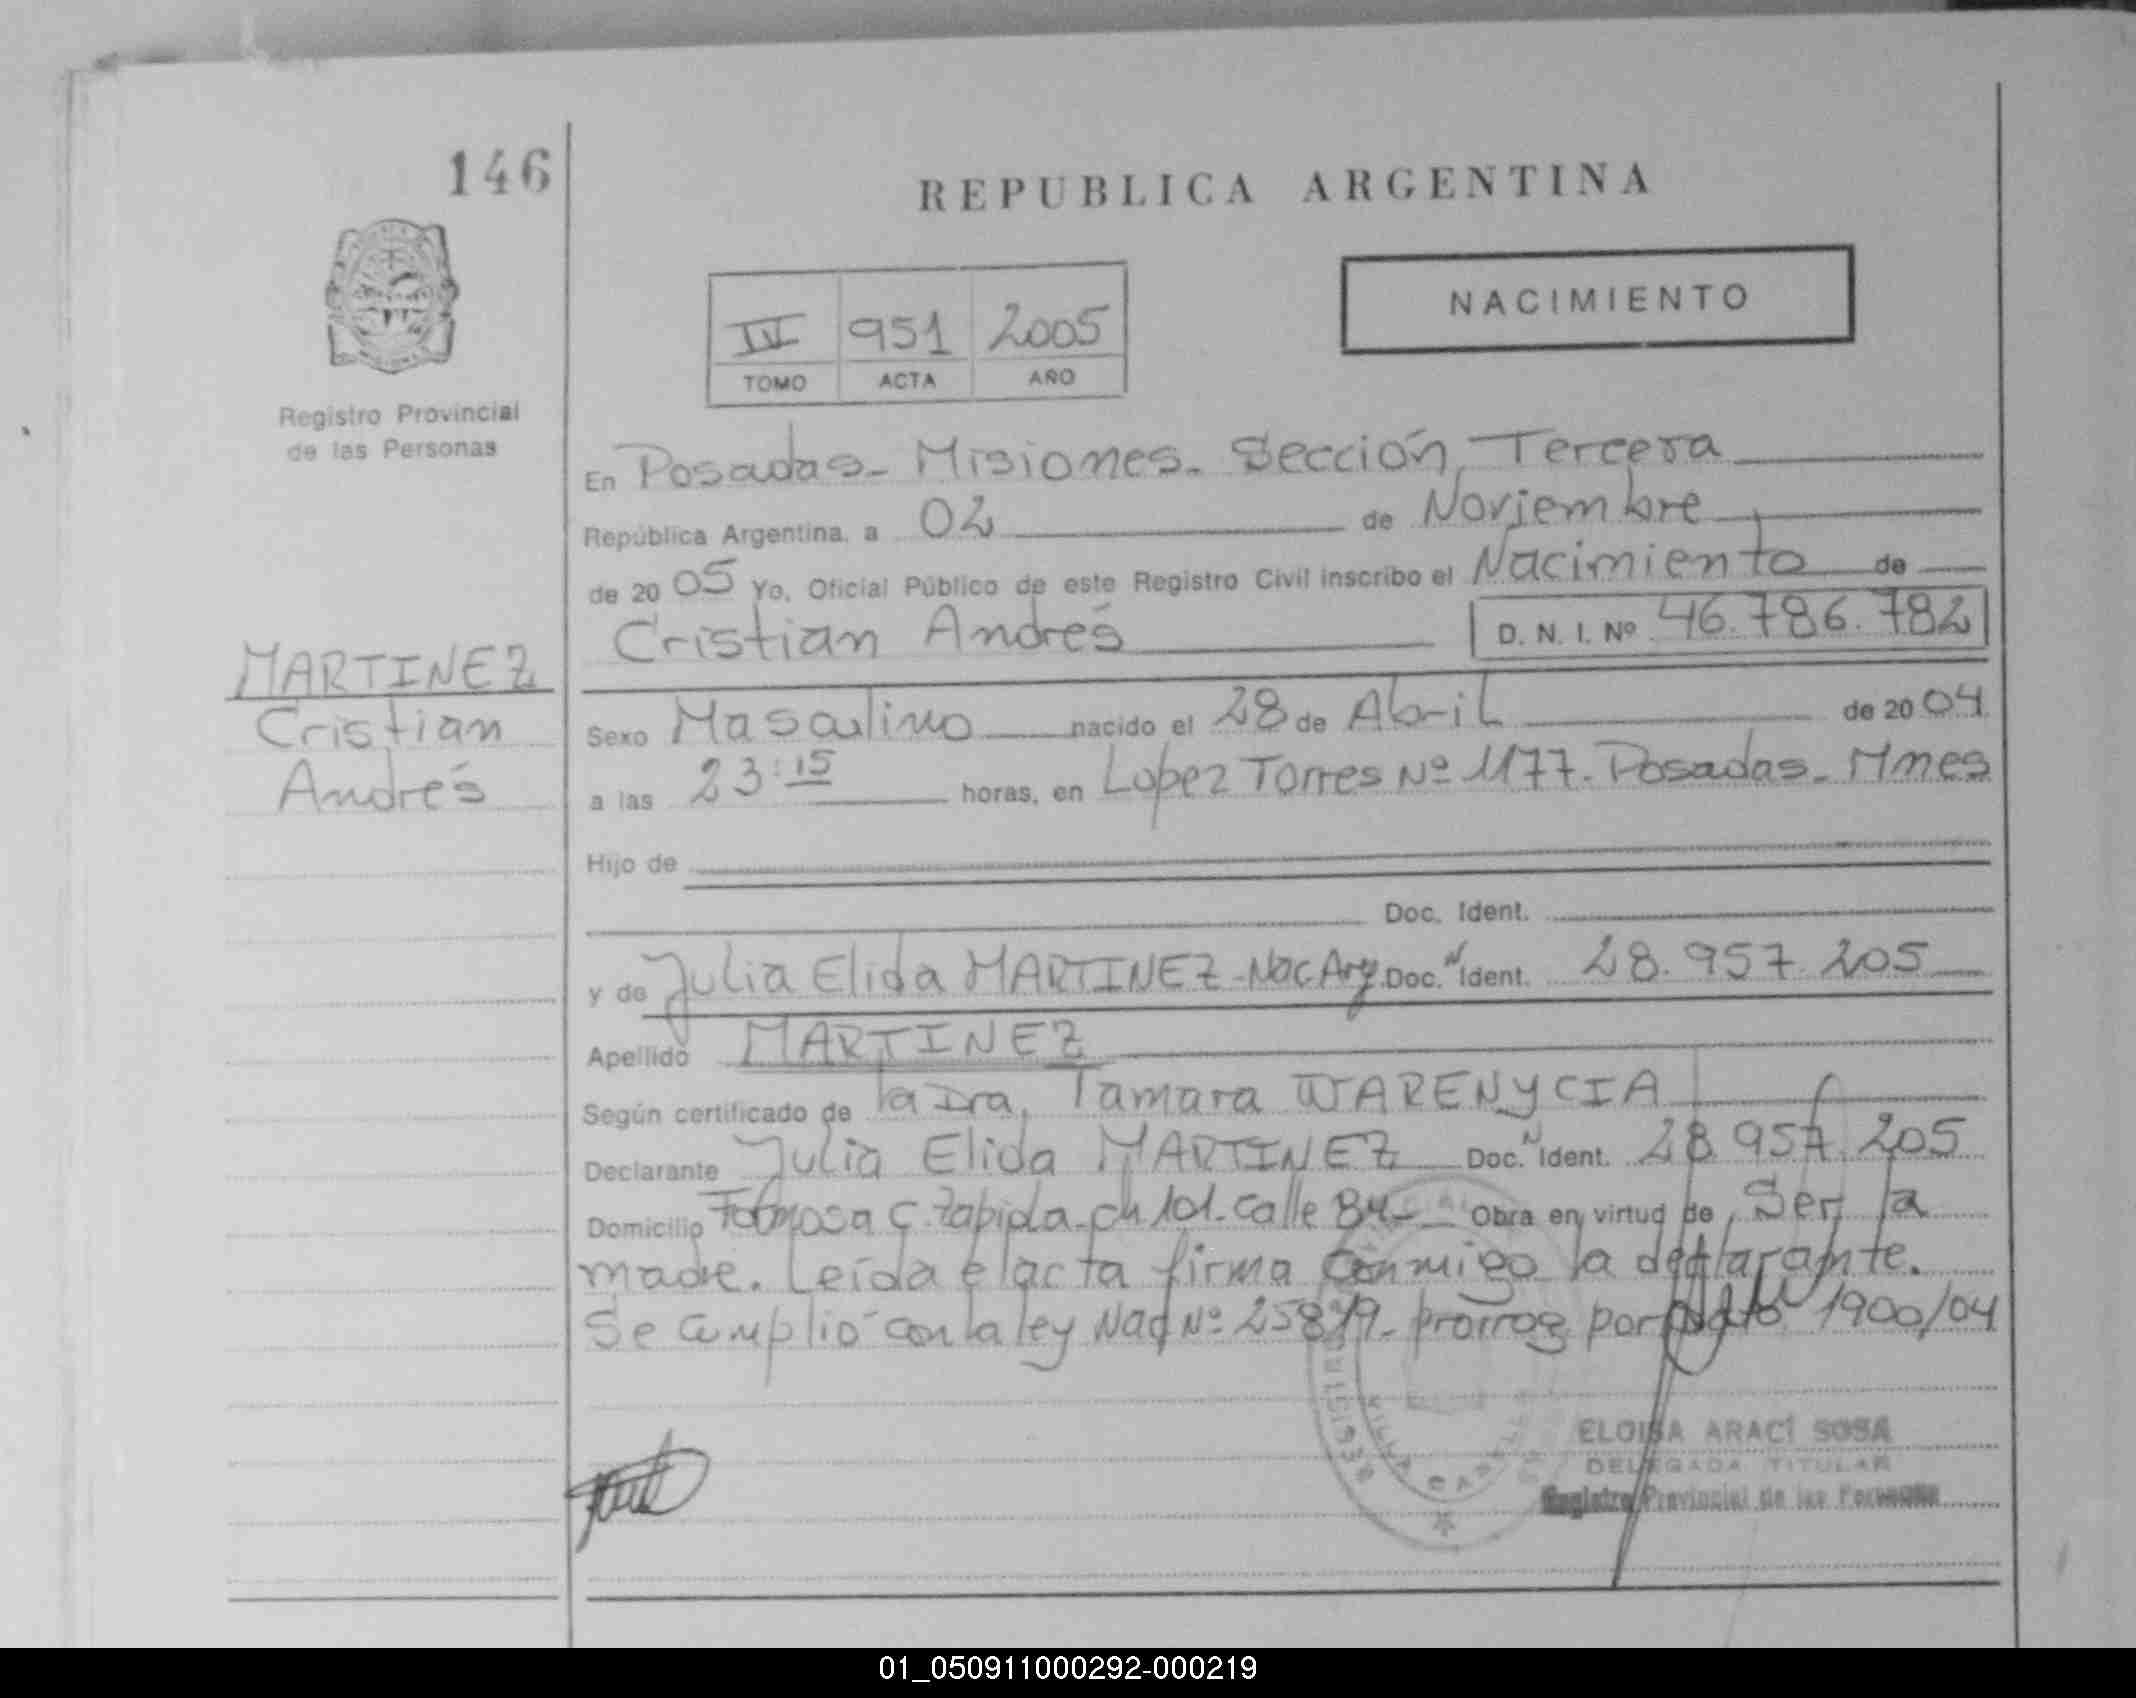 146
REPUBLICA ARGENTINA
NACIMIENTO
IV 951 2005
TOMO ACTA AÑO
Registro Provincial
de las Personas
En Posadas - Misiones. Sección Tercera
República Argentina, a 02 de Noviembre
de 2005 Yo, Oficial Público de este Registro Civil inscribo el Nacimiento de
Cristian Andrés D. N. I. Nº 46.786.782
MARTINEZ
Cristian
Andrés
Sexo Masculino nacido el 28 de Abril de 2004
a las 23:15 horas, en Lopez Torres Nº 1177. Posadas - Mnes
Hijo de
Doc. Ident.
y de Julia Elida MARTINEZ - Nac Arg. Doc. N Ident. 28.957.205
Apellido MARTINEZ
Según certificado de la Dra. Tamara WARENYCIA
Declarante Julia Elida MARTINEZ Doc. N Ident. 28.957.205
Domicilio Formosa C. Zapiola - ch 101 - calle 84 - Obra en virtud de Ser la
madre. Leída el acta firma conmigo la declarante.
Se cumplió con la ley Nac Nº 25819 - prorrog por 1900/04
ELOISA ARACÍ SOSA
DELEGADA TITULAR
Registro Provincial de las Personas
01_050911000292-000219